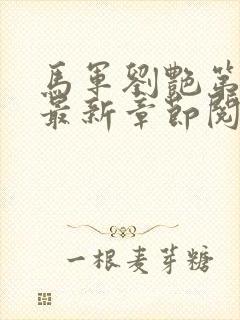 馬軍劉艷第
最新章節閱
一根麦芽糖